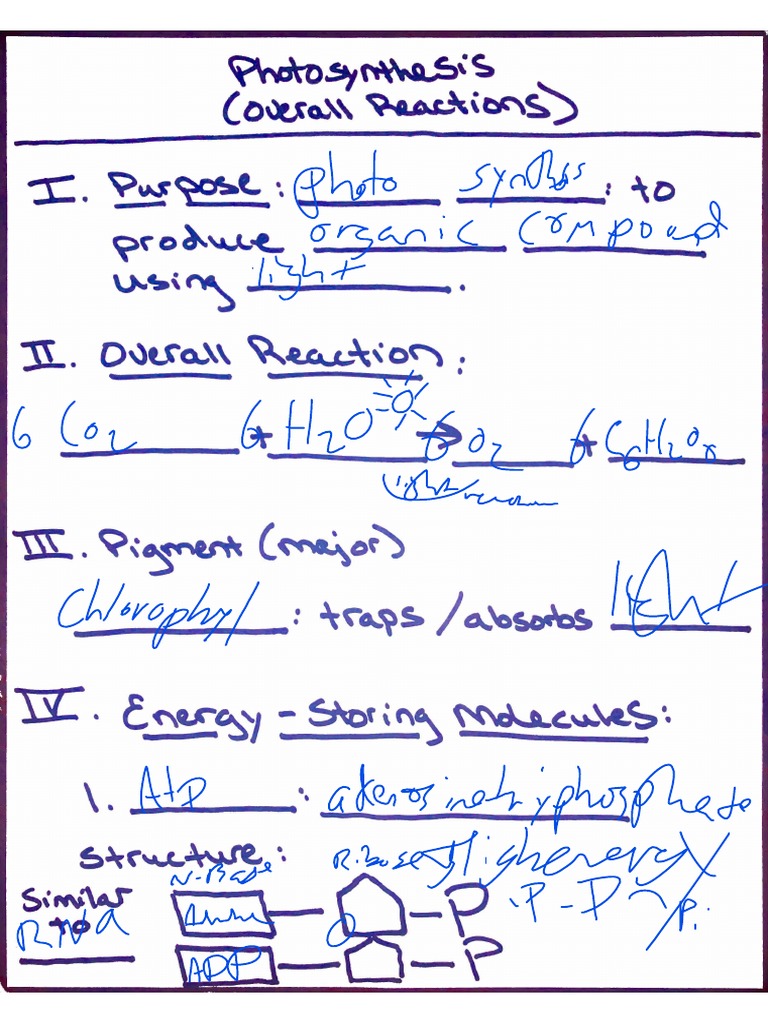 Photosynthesis
(Overall Reactions)
I. Purpose: photo synthss: to
produce organic compound
using light.
II. Overall Reaction:
6 CO2 + 6 H2O → 6 O2 + C6H2O
III. Pigment (major)
Chlorophyl: traps/absorbs light
IV. Energy-Storing Molecules:
1. Atp: adenosinetriyphosphate
Structure: Ribose High energy
N-Base
Similar to RNA
P P-P P
ADP P